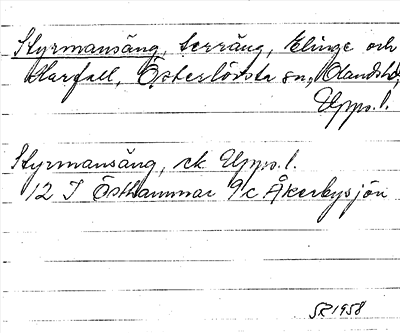 Styrmansäng, terräng, Elinge och
Karfall, Österlövsta sn, Olandshd,
Upps.l.
Styrmansäng, ek Upps.l.
12 I Östhammar 9c Åkerbysjön
SR 1958